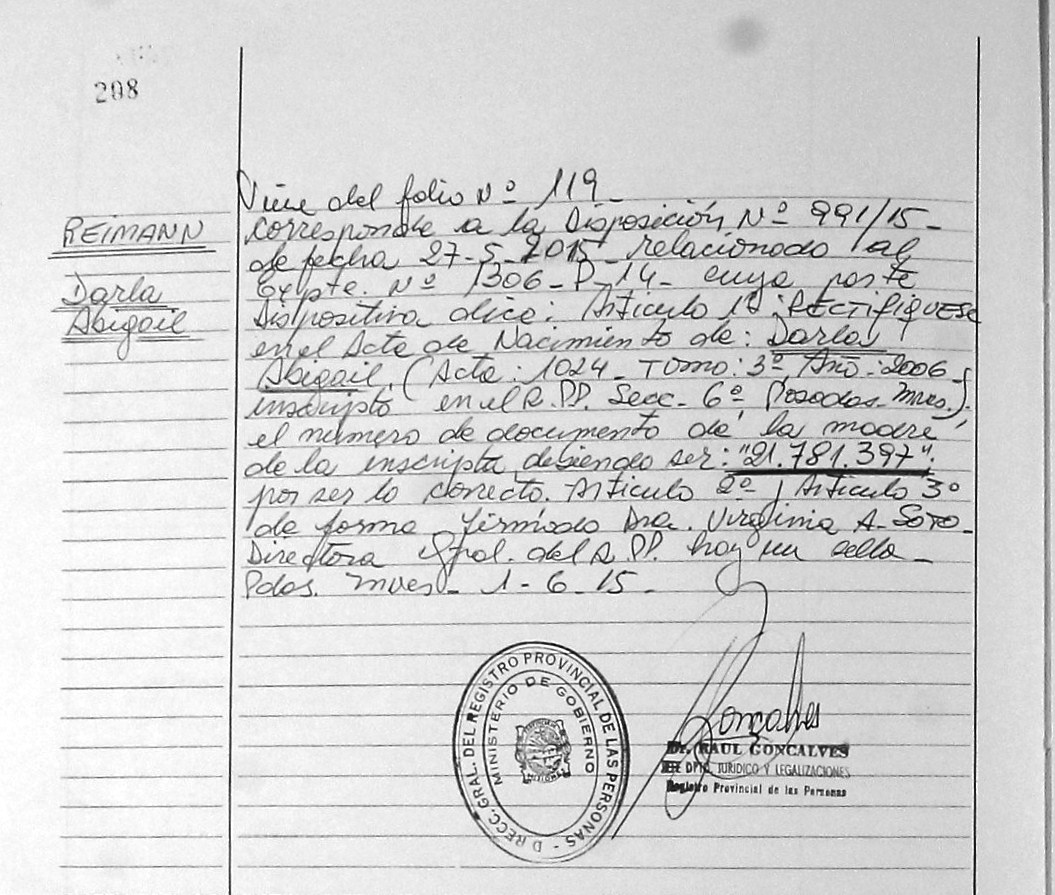 208
REIMANN
Darla
Abigail
Viene del folio Nº 119_
corresponde a la Disposición Nº 991/15_
de fecha 27-5-2015_relacionado al
Expte. Nº 1306_P_14_ cuya parte
Dispositiva dice: Articulo 1º: RECTIFIQUESE
en el Acta de Nacimiento de: Darla
Abigail. (Acta: 1024_Tomo: 3º Año: 2006_
inscripto en el R.PP. Secc. 6º Posadas-Mnes.).
el número de documento de la madre
de la inscripta, debiendo ser: "21.781.397".
por ser lo correcto. Articulo 2º, Articulo 3º
de forma firmado Dra. Virginia A. SOTO_
Directora Gral. del R.PP. hay un sello_
Pdas. Mnes_ 1-6-15_
D RECC. GRAL. DEL REGISTRO PROVINCIAL DE LAS PERSONAS -
MINISTERIO DE GOBIERNO
MISIONES
Goncalves
Dr. RAUL GONCALVES
JEFE DPTO. JURIDICO Y LEGALIZACIONES
Registro Provincial de las Personas